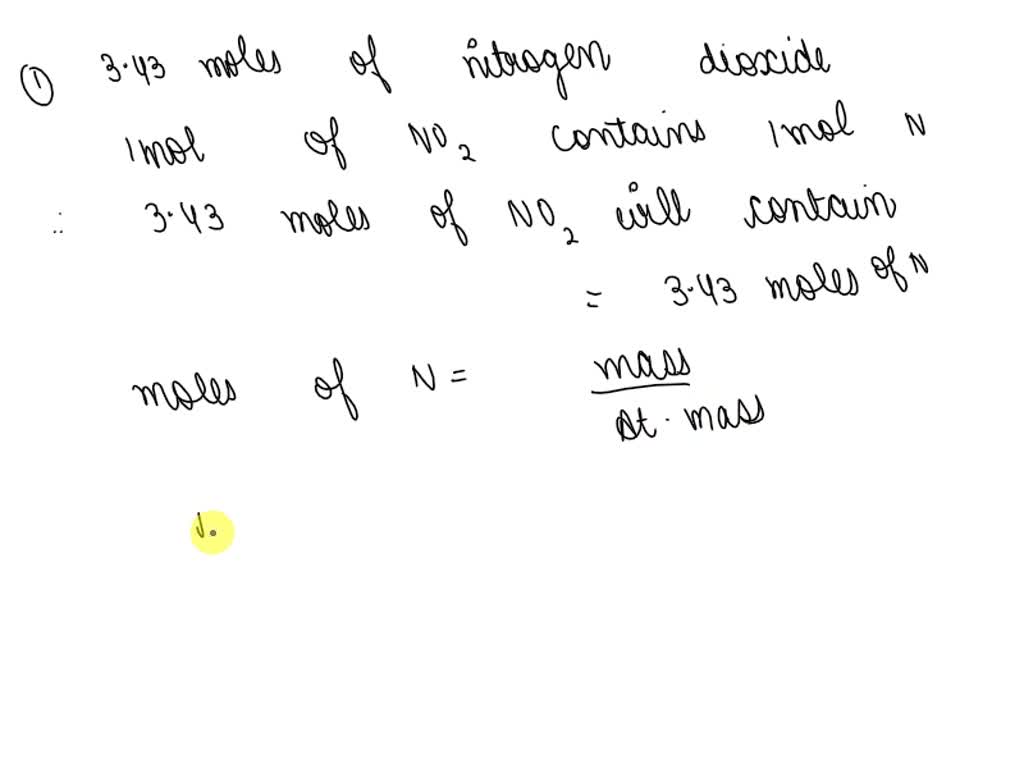 ① 3.43 moles of nitrogen dioxide
1mol of NO₂ contains 1mol N
∴ 3.43 moles of NO₂ will contain
= 3.43 moles of N
moles of N = mass
at. mass